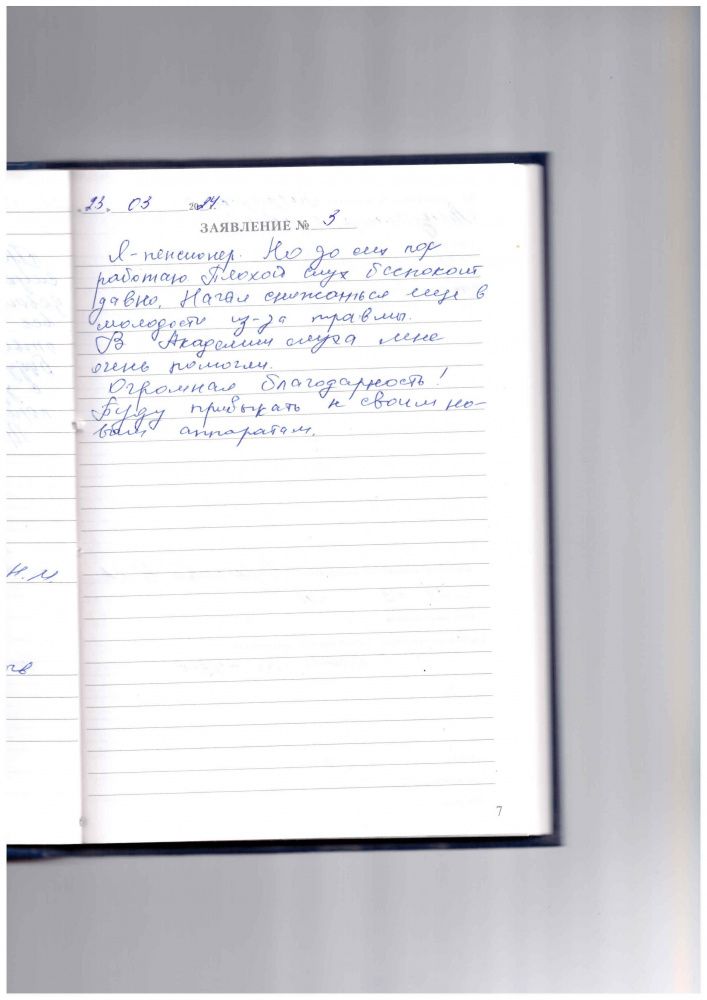 23. 03 2024.
ЗАЯВЛЕНИЕ № 3
Я-пенсионер. Но до сих пор
работаю Плохой слух беспокоит
давно. Начал снижаться еще в
молодости из-за травмы.
В Академии слуха мне
очень помогли.
Огромная благодарность!
Буду привыкать к своим но-
вым аппаратам.
н.и.
7